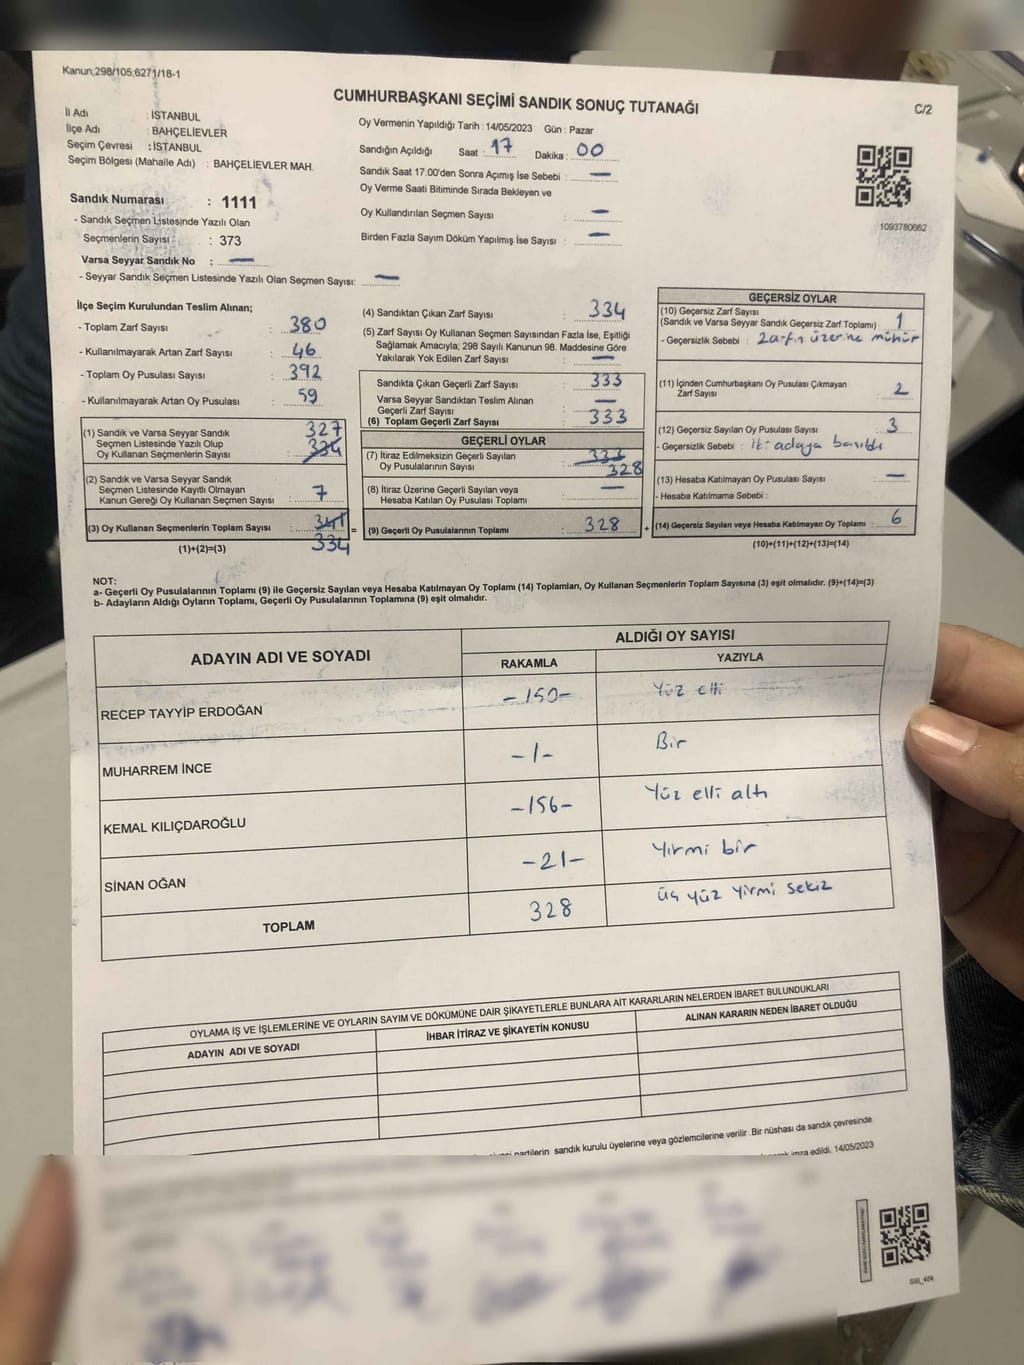 Kanun;298/105;6271/18-1
CUMHURBAŞKANI SEÇİMİ SANDIK SONUÇ TUTANAĞI
C/2
İl Adı : İSTANBUL
İlçe Adı : BAHÇELİEVLER
Seçim Çevresi : İSTANBUL
Seçim Bölgesi (Mahalle Adı) : BAHÇELİEVLER MAH.
Oy Vermenin Yapıldığı Tarih : 14/05/2023 Gün : Pazar
Sandığın Açıldığı Saat : 17 Dakika : 00
Sandık Saat 17.00'den Sonra Açımış İse Sebebi : —
Oy Verme Saati Bitiminde Sırada Bekleyen ve
Oy Kullandırılan Seçmen Sayısı : —
Birden Fazla Sayım Döküm Yapılmış İse Sayısı : —
1093780662
Sandık Numarası : 1111
- Sandık Seçmen Listesinde Yazılı Olan
Seçmenlerin Sayısı : 373
Varsa Seyyar Sandık No : —
- Seyyar Sandık Seçmen Listesinde Yazılı Olan Seçmen Sayısı: —
İlçe Seçim Kurulundan Teslim Alınan;
- Toplam Zarf Sayısı : 380
- Kullanılmayarak Artan Zarf Sayısı : 46
- Toplam Oy Pusulası Sayısı : 392
- Kullanılmayarak Artan Oy Pusulası : 59
(1) Sandık ve Varsa Seyyar Sandık
Seçmen Listesinde Yazılı Olup
Oy Kullanan Seçmenlerin Sayısı : 327 334
(2) Sandık ve Varsa Seyyar Sandık
Seçmen Listesinde Kayıtlı Olmayan
Kanun Gereği Oy Kullanan Seçmen Sayısı : 7
(3) Oy Kullanan Seçmenlerin Toplam Sayısı : 341 334
(1)+(2)=(3)
(4) Sandıktan Çıkan Zarf Sayısı : 334
(5) Zarf Sayısı Oy Kullanan Seçmen Sayısından Fazla İse, Eşitliği
Sağlamak Amacıyla; 298 Sayılı Kanunun 98. Maddesine Göre
Yakılarak Yok Edilen Zarf Sayısı : —
Sandıkta Çıkan Geçerli Zarf Sayısı : 333
Varsa Seyyar Sandıktan Teslim Alınan
Geçerli Zarf Sayısı : —
(6) Toplam Geçerli Zarf Sayısı : 333
GEÇERLİ OYLAR
(7) İtiraz Edilmeksizin Geçerli Sayılan
Oy Pusulalarının Sayısı : 333 328
(8) İtiraz Üzerine Geçerli Sayılan veya
Hesaba Katılan Oy Pusulası Toplamı : —
= (9) Geçerli Oy Pusulalarının Toplamı : 328 +
GEÇERSİZ OYLAR
(10) Geçersiz Zarf Sayısı
(Sandık ve Varsa Seyyar Sandık Geçersiz Zarf Toplamı) : 1
- Geçersizlik Sebebi : Zarfın üzerine mühür
(11) İçinden Cumhurbaşkanı Oy Pusulası Çıkmayan
Zarf Sayısı : 2
(12) Geçersiz Sayılan Oy Pusulası Sayısı : 3
- Geçersizlik Sebebi : iki adaya basıldı
(13) Hesaba Katılmayan Oy Pusulası Sayısı : —
- Hesaba Katılmama Sebebi :
(14) Geçersiz Sayılan veya Hesaba Katılmayan Oy Toplamı : 6
(10)+(11)+(12)+(13)=(14)
NOT:
a- Geçerli Oy Pusulalarının Toplamı (9) ile Geçersiz Sayılan veya Hesaba Katılmayan Oy Toplamı (14) Toplamları, Oy Kullanan Seçmenlerin Toplam Sayısına (3) eşit olmalıdır. (9)+(14)=(3)
b- Adayların Aldığı Oyların Toplamı, Geçerli Oy Pusulalarının Toplamına (9) eşit olmalıdır.
ADAYIN ADI VE SOYADI
ALDIĞI OY SAYISI
RAKAMLA YAZIYLA
RECEP TAYYİP ERDOĞAN -150- Yüz elli
MUHARREM İNCE -1- Bir
KEMAL KILIÇDAROĞLU -156- Yüz elli altı
SİNAN OĞAN -21- Yirmi bir
TOPLAM 328 üç yüz yirmi sekiz
OYLAMA İŞ VE İŞLEMLERİNE VE OYLARIN SAYIM VE DÖKÜMÜNE DAİR ŞİKAYETLERLE BUNLARA AİT KARARLARIN NELERDEN İBARET BULUNDUKLARI
ADAYIN ADI VE SOYADI İHBAR İTİRAZ VE ŞİKAYETİN KONUSU ALINAN KARARIN NEDEN İBARET OLDUĞU
partilerin sandık kurulu üyelerine veya gözlemcilerine verilir .Bir nüshası da sandık çevresinde
imza edildi. 14/05/2023